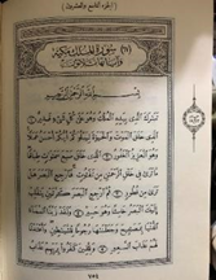 (الجزء التاسع والعشرون)
سورة الملك مكية
وآياتها ثلاثون
بسم الله الرحمن الرحيم
تبارك الذي بيده الملك وهو على كل شيء قدير
الذي خلق الموت والحياة ليبلوكم أيكم أحسن عملا
وهو العزيز الغفور الذي خلق سبع سموات طباقا
ما ترى في خلق الرحمن من تفاوت فارجع البصر هل
ترى من فطور ثم ارجع البصر كرتين ينقلب
إليك البصر خاسئا وهو حسير ولقد زينا السماء
الدنيا بمصابيح وجعلناها رجوما للشياطين وأعتدنا
لهم عذاب السعير وللذين كفروا بربهم عذاب